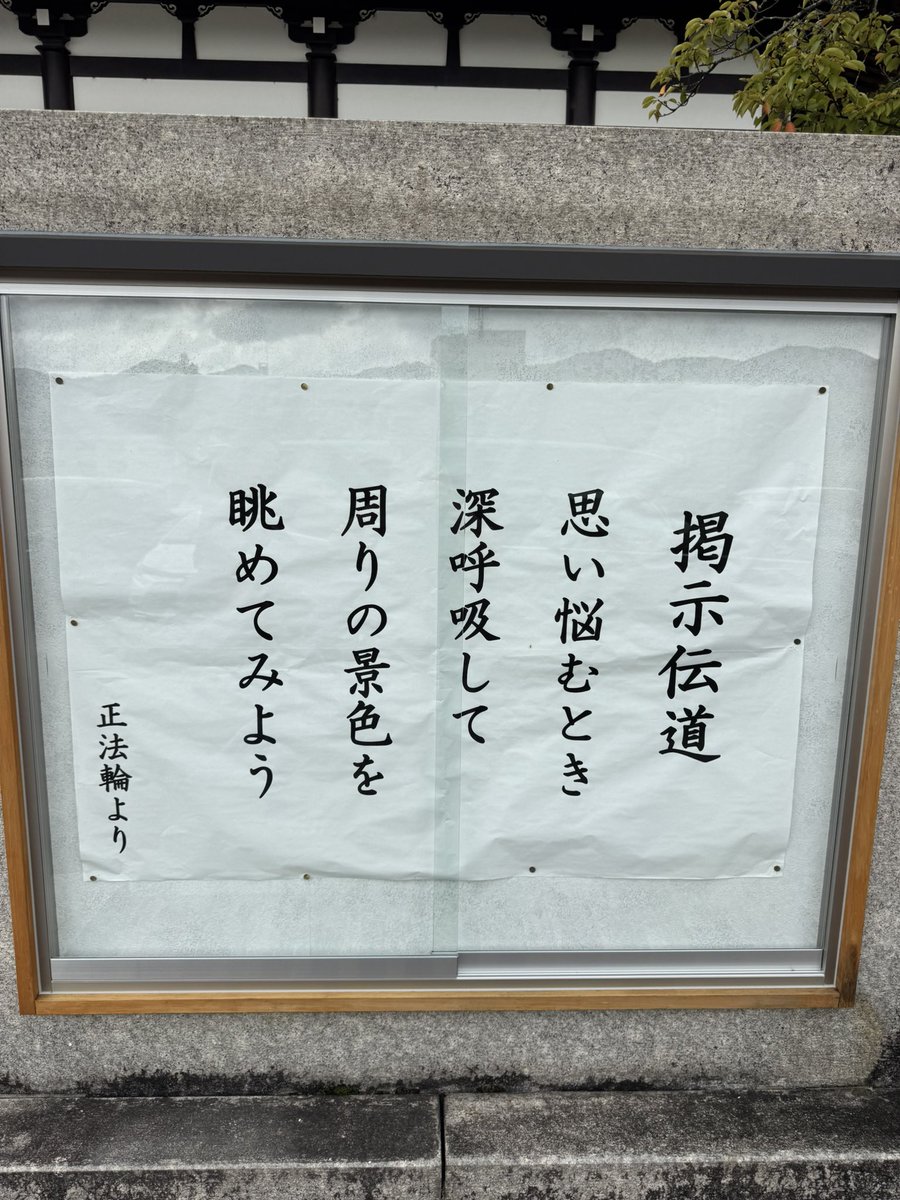 掲示伝道
思い悩むとき
深呼吸して
周りの景色を
眺めてみよう
正法輪より